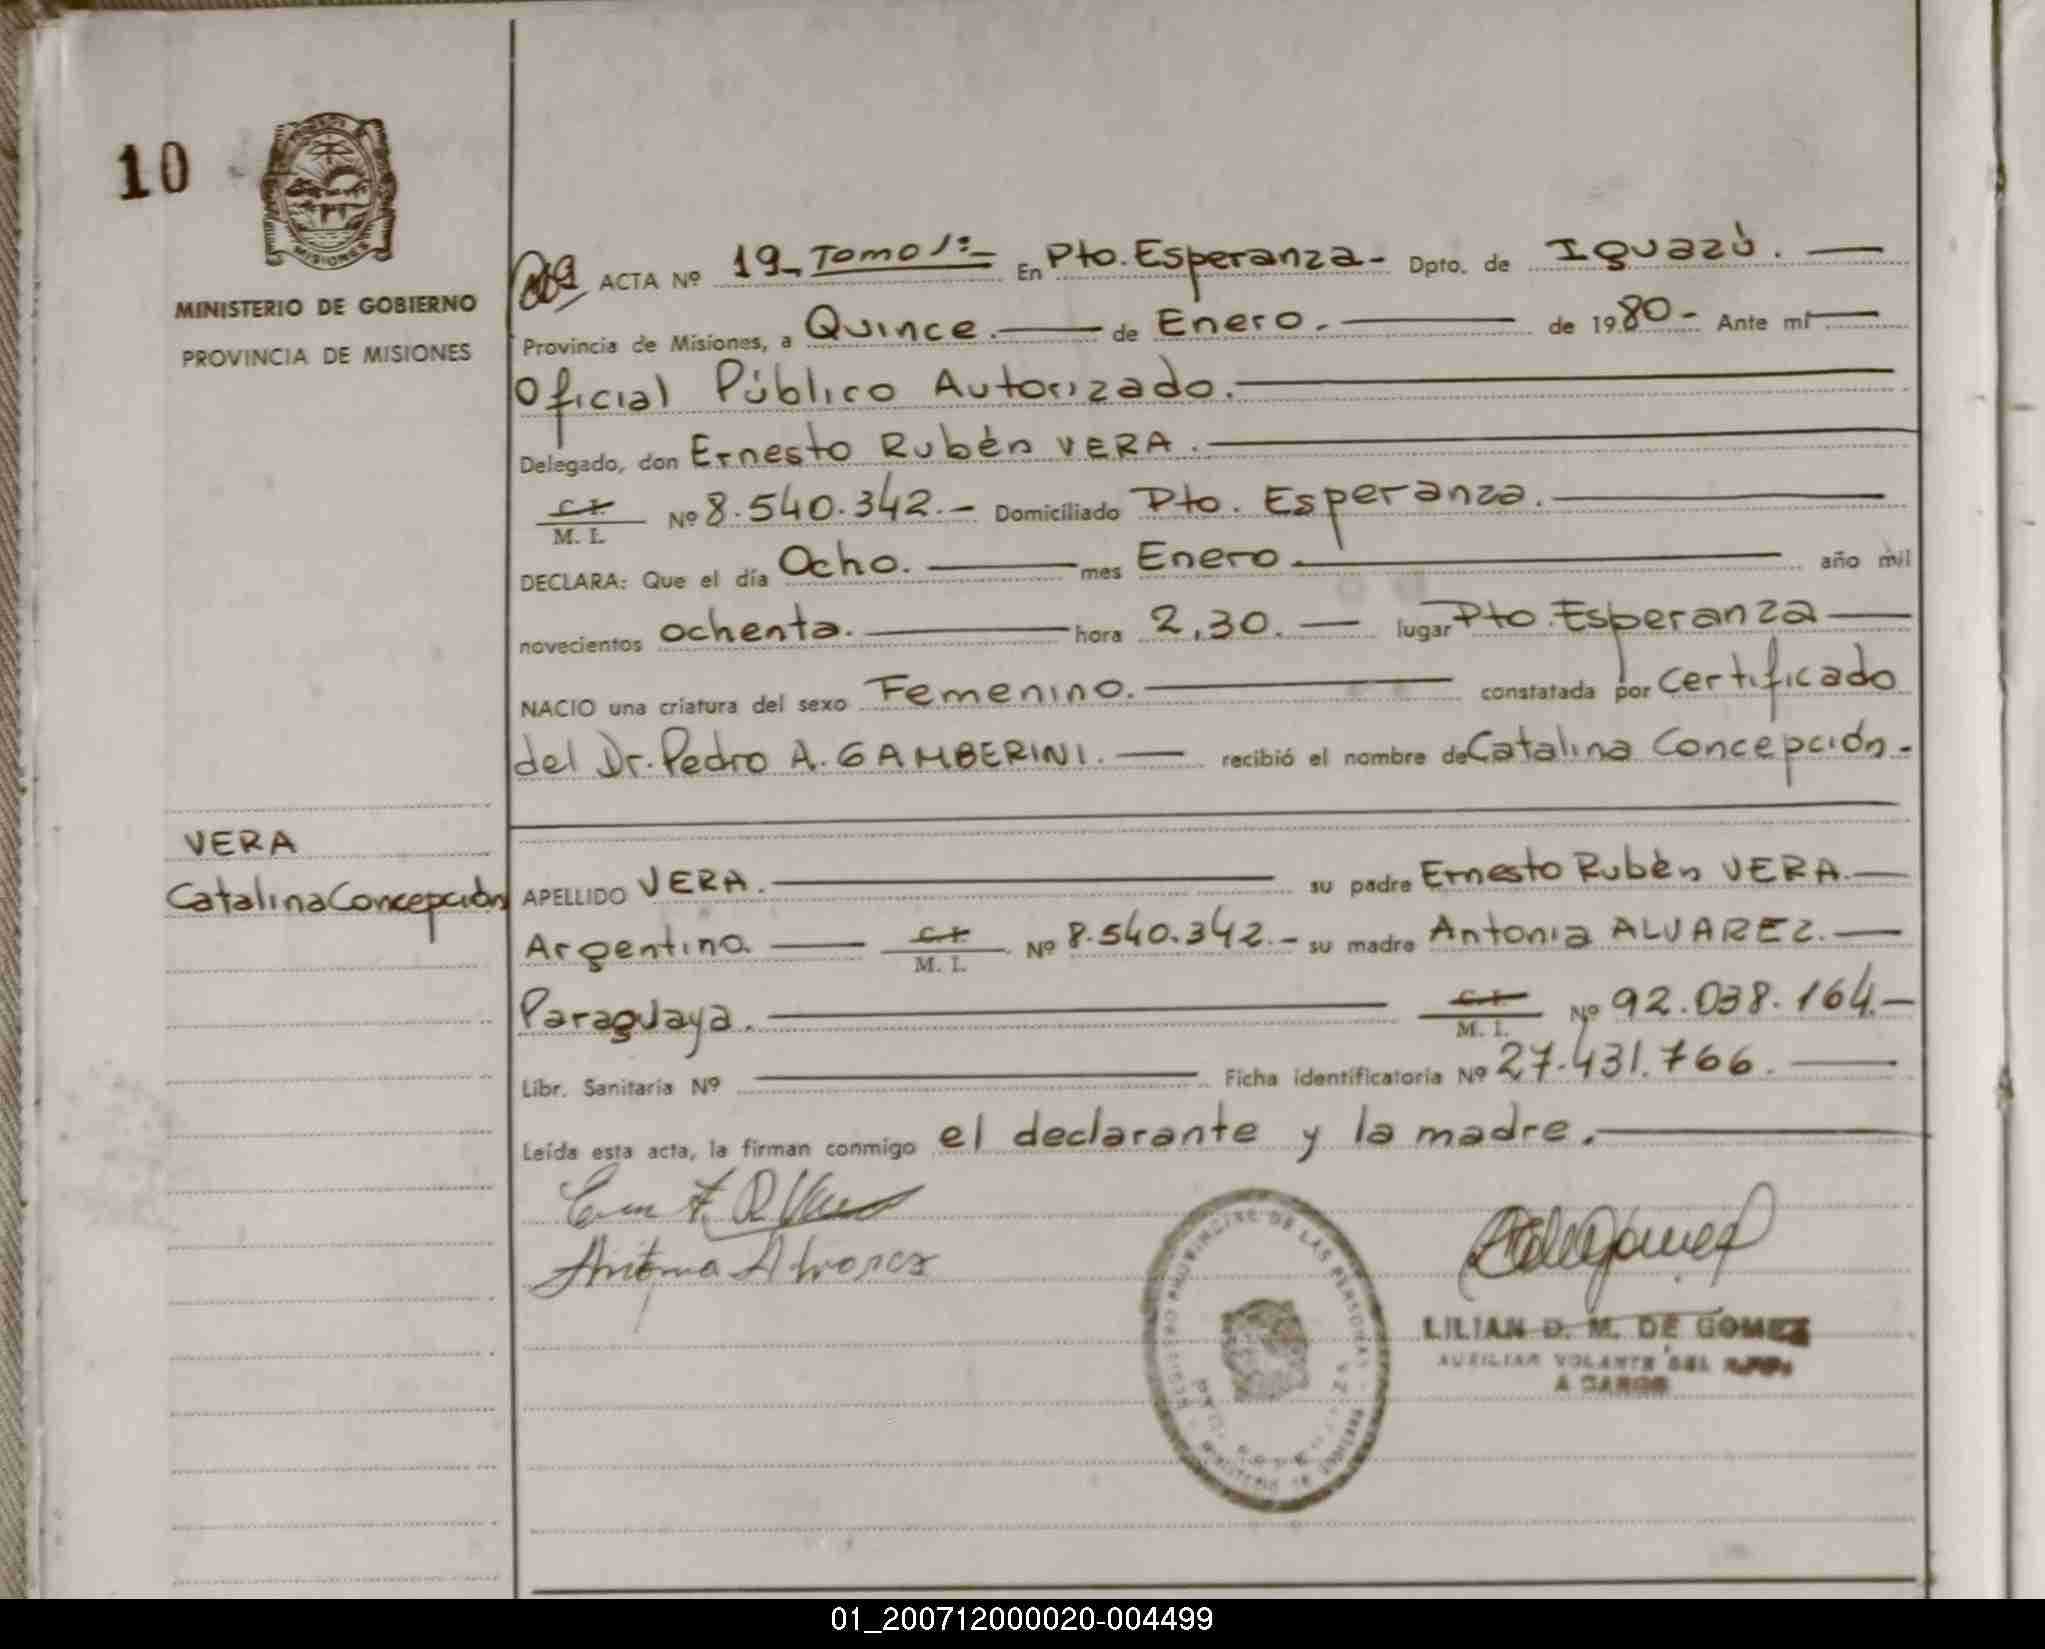 10
MISIONES
MINISTERIO DE GOBIERNO
PROVINCIA DE MISIONES
ACTA Nº 19_ Tomo 1º_ En Pto. Esperanza- Dpto. de Iguazú.
Provincia de Misiones, a Quince. de Enero. de 1980- Ante mí
Oficial Público Autorizado.
Delegado, don Ernesto Rubén VERA.
C. I.
M. I. Nº 8.540.342.- Domiciliado Pto. Esperanza.
DECLARA: Que el día Ocho. mes Enero. año mil
novecientos ochenta. hora 2,30. lugar Pto. Esperanza
NACIO una criatura del sexo Femenino. constatada por certificado
del Dr. Pedro A. GAMBERINI. recibió el nombre de Catalina Concepción.-
VERA
Catalina Concepción
APELLIDO VERA. su padre Ernesto Rubén VERA.
Argentino. C. I.
M. I. Nº 8.540.342.- su madre Antonia ALVAREZ.
Paraguaya. C. I.
M. I. Nº 92.038.164.-
Libr. Sanitaria Nº Ficha identificatoria Nº 27.431.766.
Leída esta acta, la firman conmigo el declarante y la madre.
Antonia Alvarez
REGISTRO PROVINCIAL DE LAS PERSONAS
LILIAN D. M. DE GOMEZ
AUXILIAR VOLANTE DEL
A CARGO
01_200712000020-004499